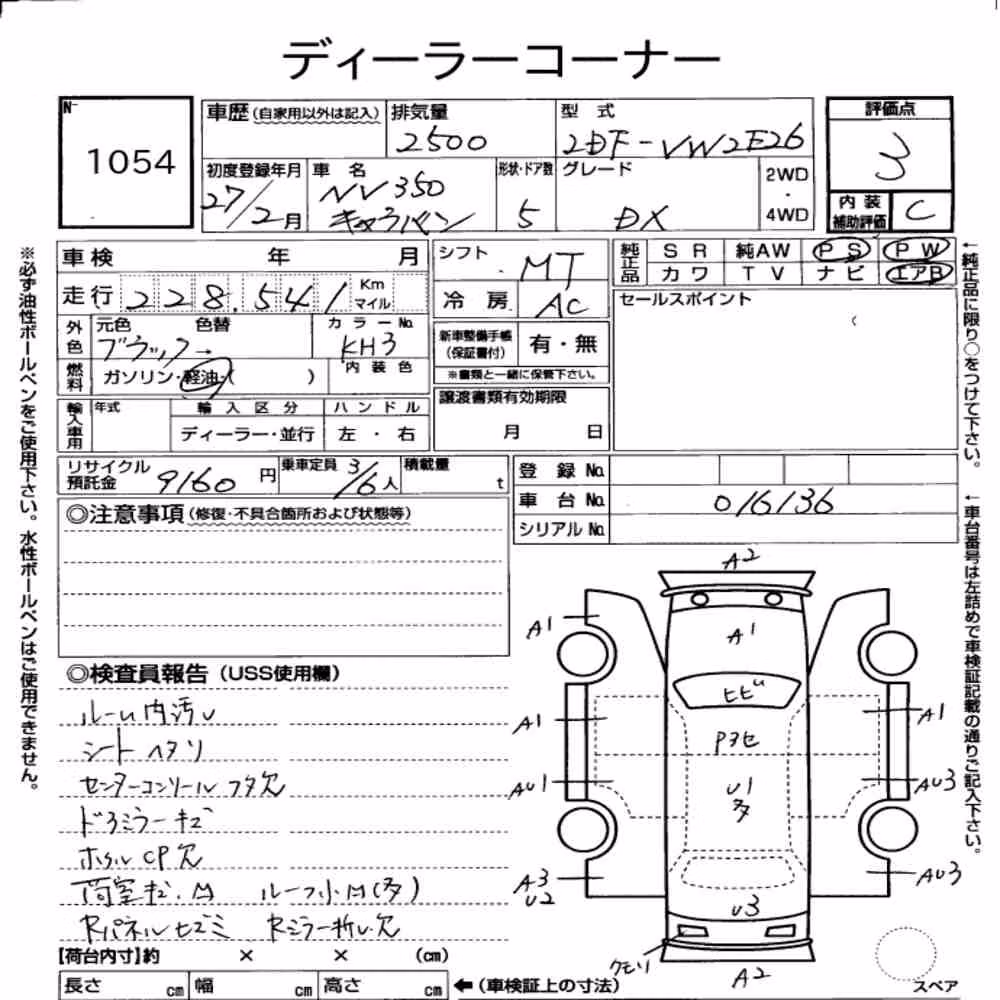 ディーラーコーナー
N-
1054
車歴 (自家用以外は記入)
排気量
2500
型 式
2DF-VW2E26
評価点
3
初度登録年月
27/2月
車 名
NV350
キャラバン
形状・ドア数
5
グレード
DX
2WD
・
4WD
内 装
補助評価
C
車検 年 月
走行 228,541 Km
マイル
外色
元色 色替
ブラック→
カラーNo.
KH3
燃料
ガソリン・軽油・( )
内 装 色
輸入車用
年式
輸 入 区 分
ディーラー・並行
ハ ン ド ル
左 ・ 右
シフト
MT
冷 房
AC
新車整備手帳
(保証書付)
有・無
※書類と一緒に保管下さい。
譲渡書類有効期限
月 日
純正品
S R 純AW P S P W
カ ワ T V ナ ビ エアB
セールスポイント
リサイクル
預託金
9160 円
乗車定員 3/6人
積載量 t
登 録 No.
車 台 No. 016136
シリアル No.
◎注意事項 (修復・不具合箇所および状態等)
◎検査員報告 (USS使用欄)
ルーム内汚レ
シートヘタリ
センターコンソールフタ欠
ドアミラーキズ
ホイルCP欠
荷室キズ.凹 ルーフ小凹(多)
Rパネルヒズミ Rミラー折レ欠
【荷台内寸】約 × × (cm)
長さ cm 幅 cm 高さ cm
←(車検証上の寸法)
A2
A1
A1
ヒビ
A1
A1
Pヌセ
AU1
U1
多
AU3
A3
U2
AU3
U3
クモリ
A2
スペア
※必ず油性ボールペンをご使用下さい。水性ボールペンはご使用できません。
←純正品に限り○をつけて下さい。
←車台番号は左詰めで車検証記載の通りご記入下さい。